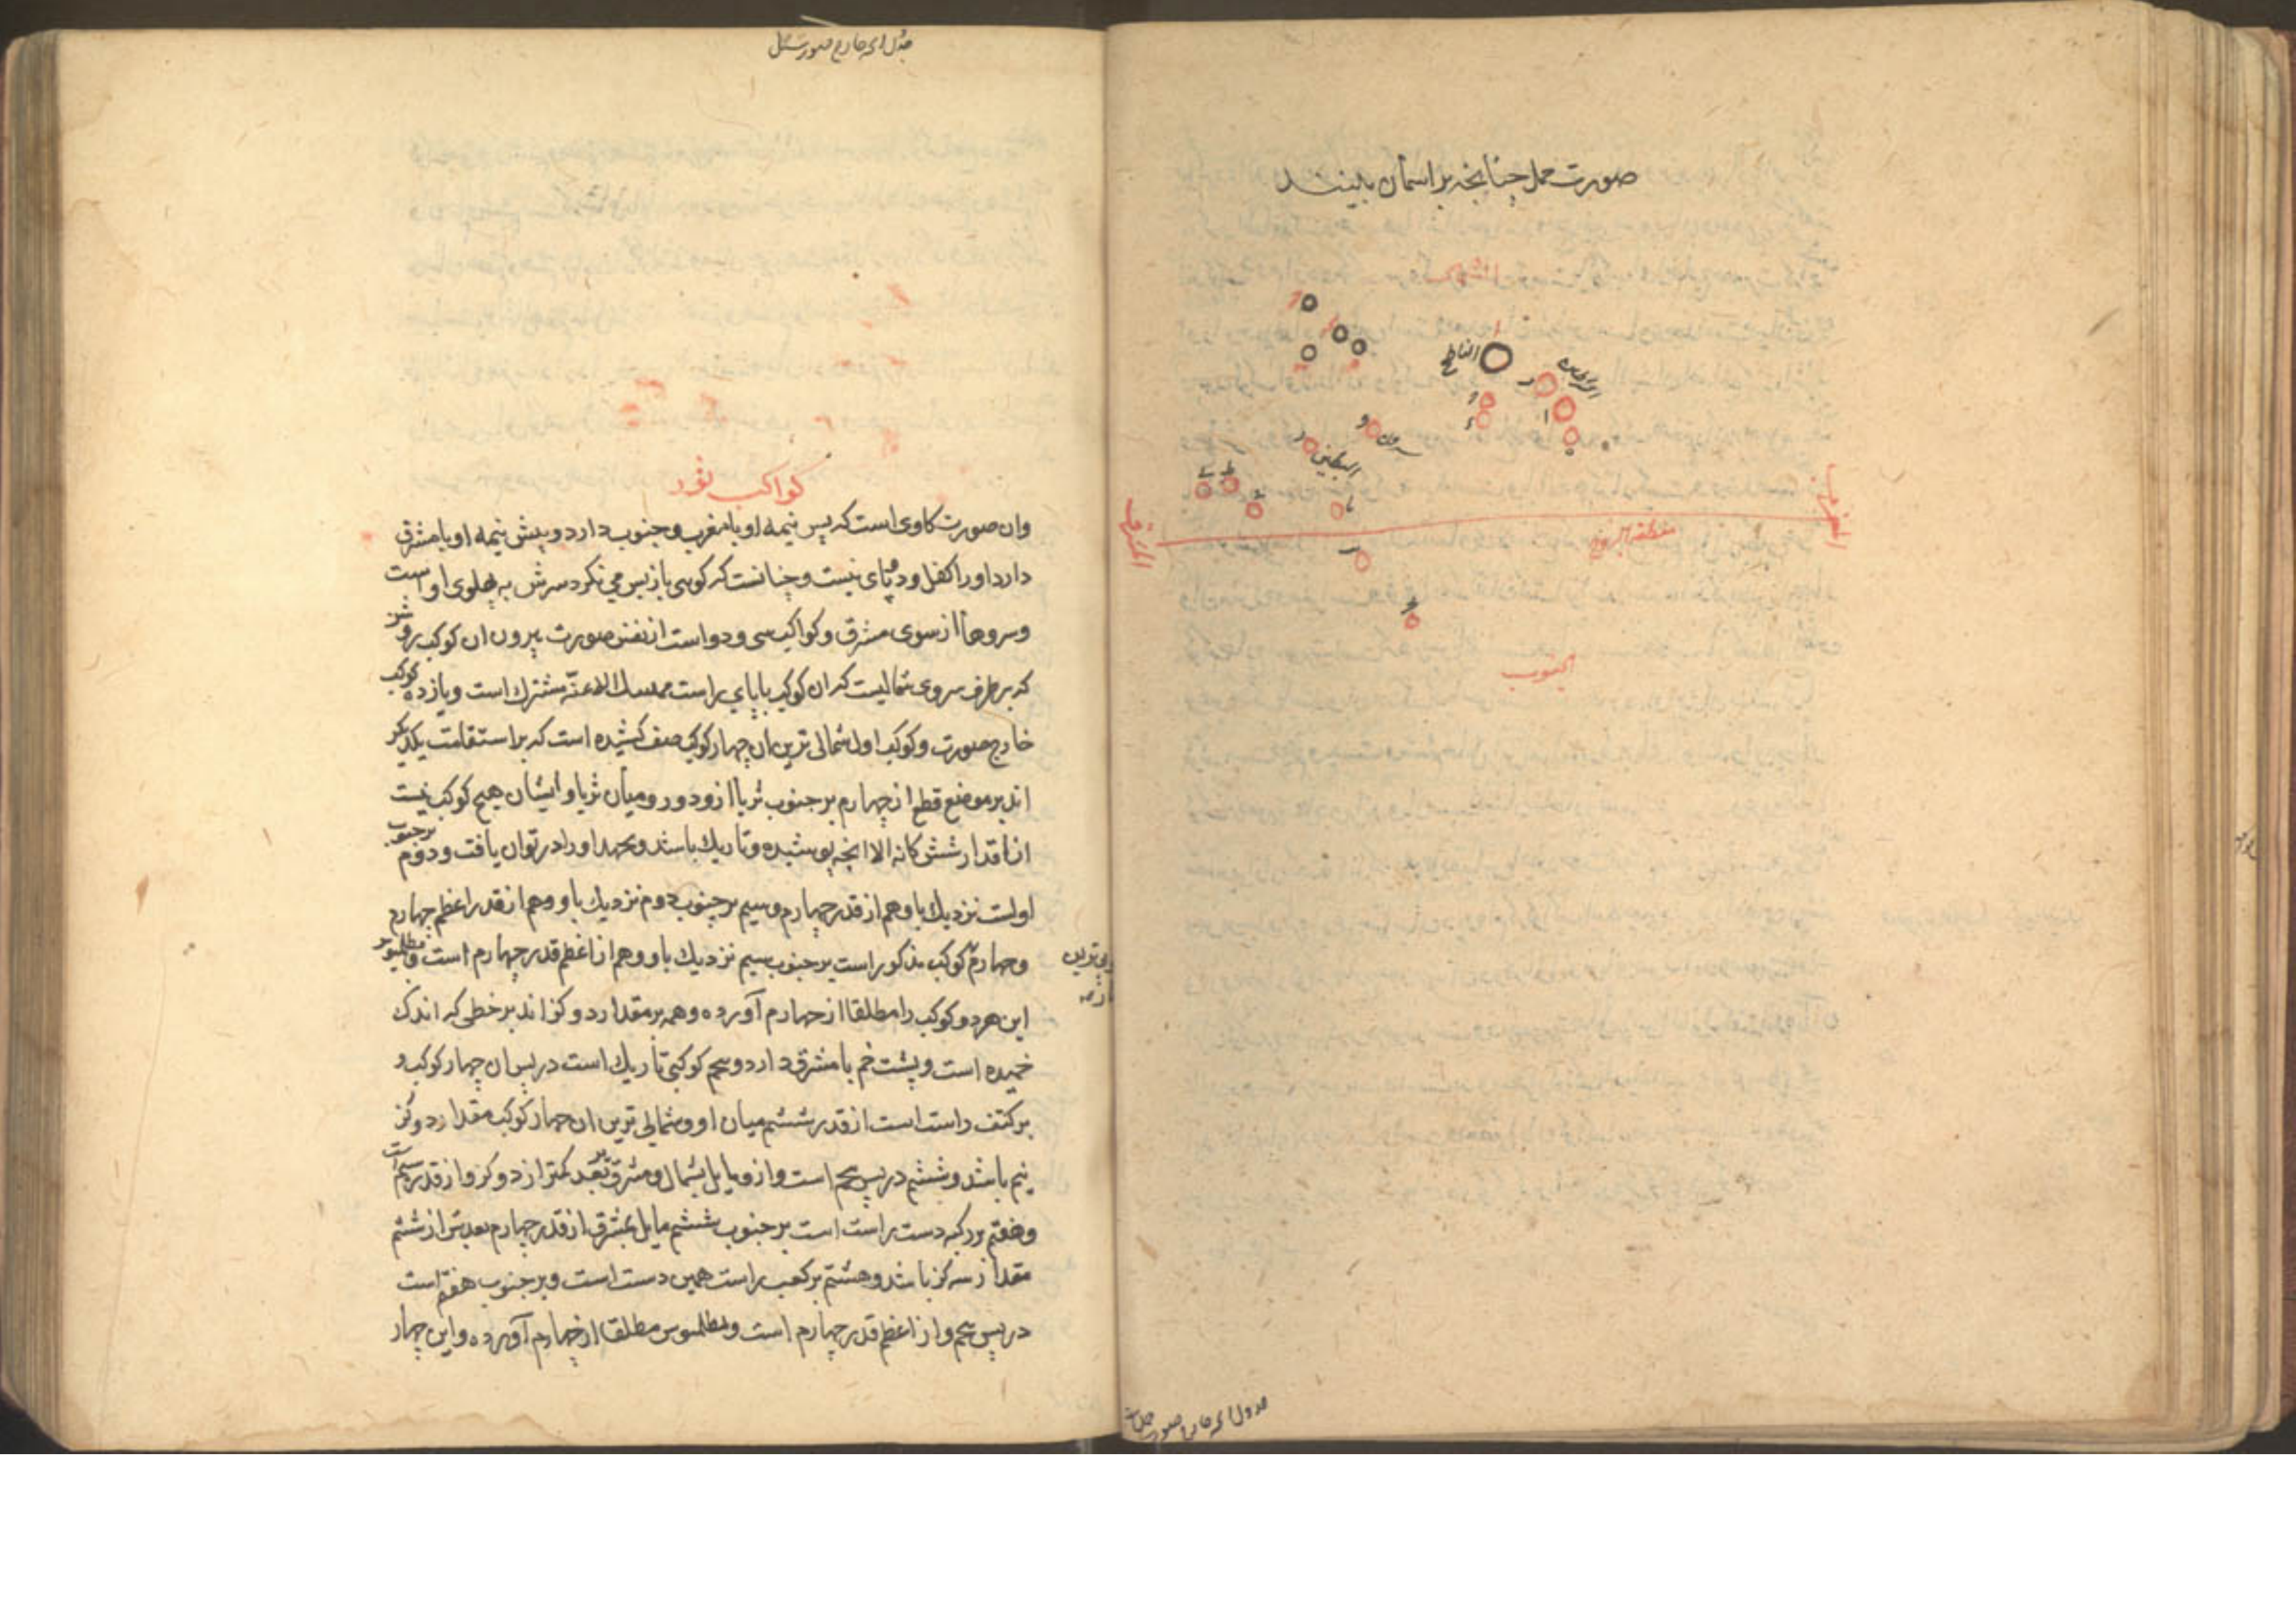 صورت حمل چنانچه بر اسمان بینند
الشمال
الناطح
الشرطین
البطین
المغرب
المشرق
منطقة البروج
الجنوب
کواکب ثور
وان صورت کاوی است که پس نیمه او با مغرب و جنوب دارد و پیش نیمه او با مشرق
دارد اورا کفل و دو پای نیست و چنانست که کوسی باز پس می نکرد سرش به پهلوی اوست
و سروها از سوی مشرق و کواکب سی و دو است از نفس صورت بیرون ان کوکب روشن
که بر طرف سروی شمالیست که ان کوکب با پای راست ممسک الاعنّه مشترک است و یازده کوکب
خارج صورت و کوکب اول شمالی ترین ان چهار کوکب صف کشیده است که بر استقامت یکدیکر
اند بر موضع قطع از چهارم بر جنوب ثریا ازو دور و میان ثریا و ایشان هیچ کوکب نیست
از اقدار شش کانه الا انچه پوشیده و تاریک باشد و بجهد اورا در توان یافت و دوم بر جنوب
اولست نزدیک با و هم از قدر چهارم و سیم بر جنوب دوم نزدیک با و و هم از قدر اعظم چهارم
و چهارم کوکب مذکور است بر جنوب سیم نزدیک با و و هم از اعظم قدر چهارم است و بطلمیوس
این هر دو کوکب را مطلقا از چهارم آورده و همه بر مقدار دو کز اند بر خطی که اندک
خمیده است و پشت خم با مشرق دارد و پنجم کوکبی تاریک است در پس ان چهار کوکب و
بر کتف راست است از قدر ششم میان او و شمالی ترین ان چهار کوکب مقدار دو کز
نیم باشد و ششم در پس پنجم است و ازو مایل بشمال و مشرق ببعد کمتر از دو کز و از قدر پنجم است
و هفتم بر رکبه دست راست است بر جنوب ششم مایل بمشرق از قدر چهارم بعدش از ششم
مقدار سه کز باشد و هشتم بر کعب راست همین دست است و بر جنوب هفتم است
در پس پنجم و از اعظم قدر چهارم است و بطلمیوس مطلقا از چهارم آورده و این چهار